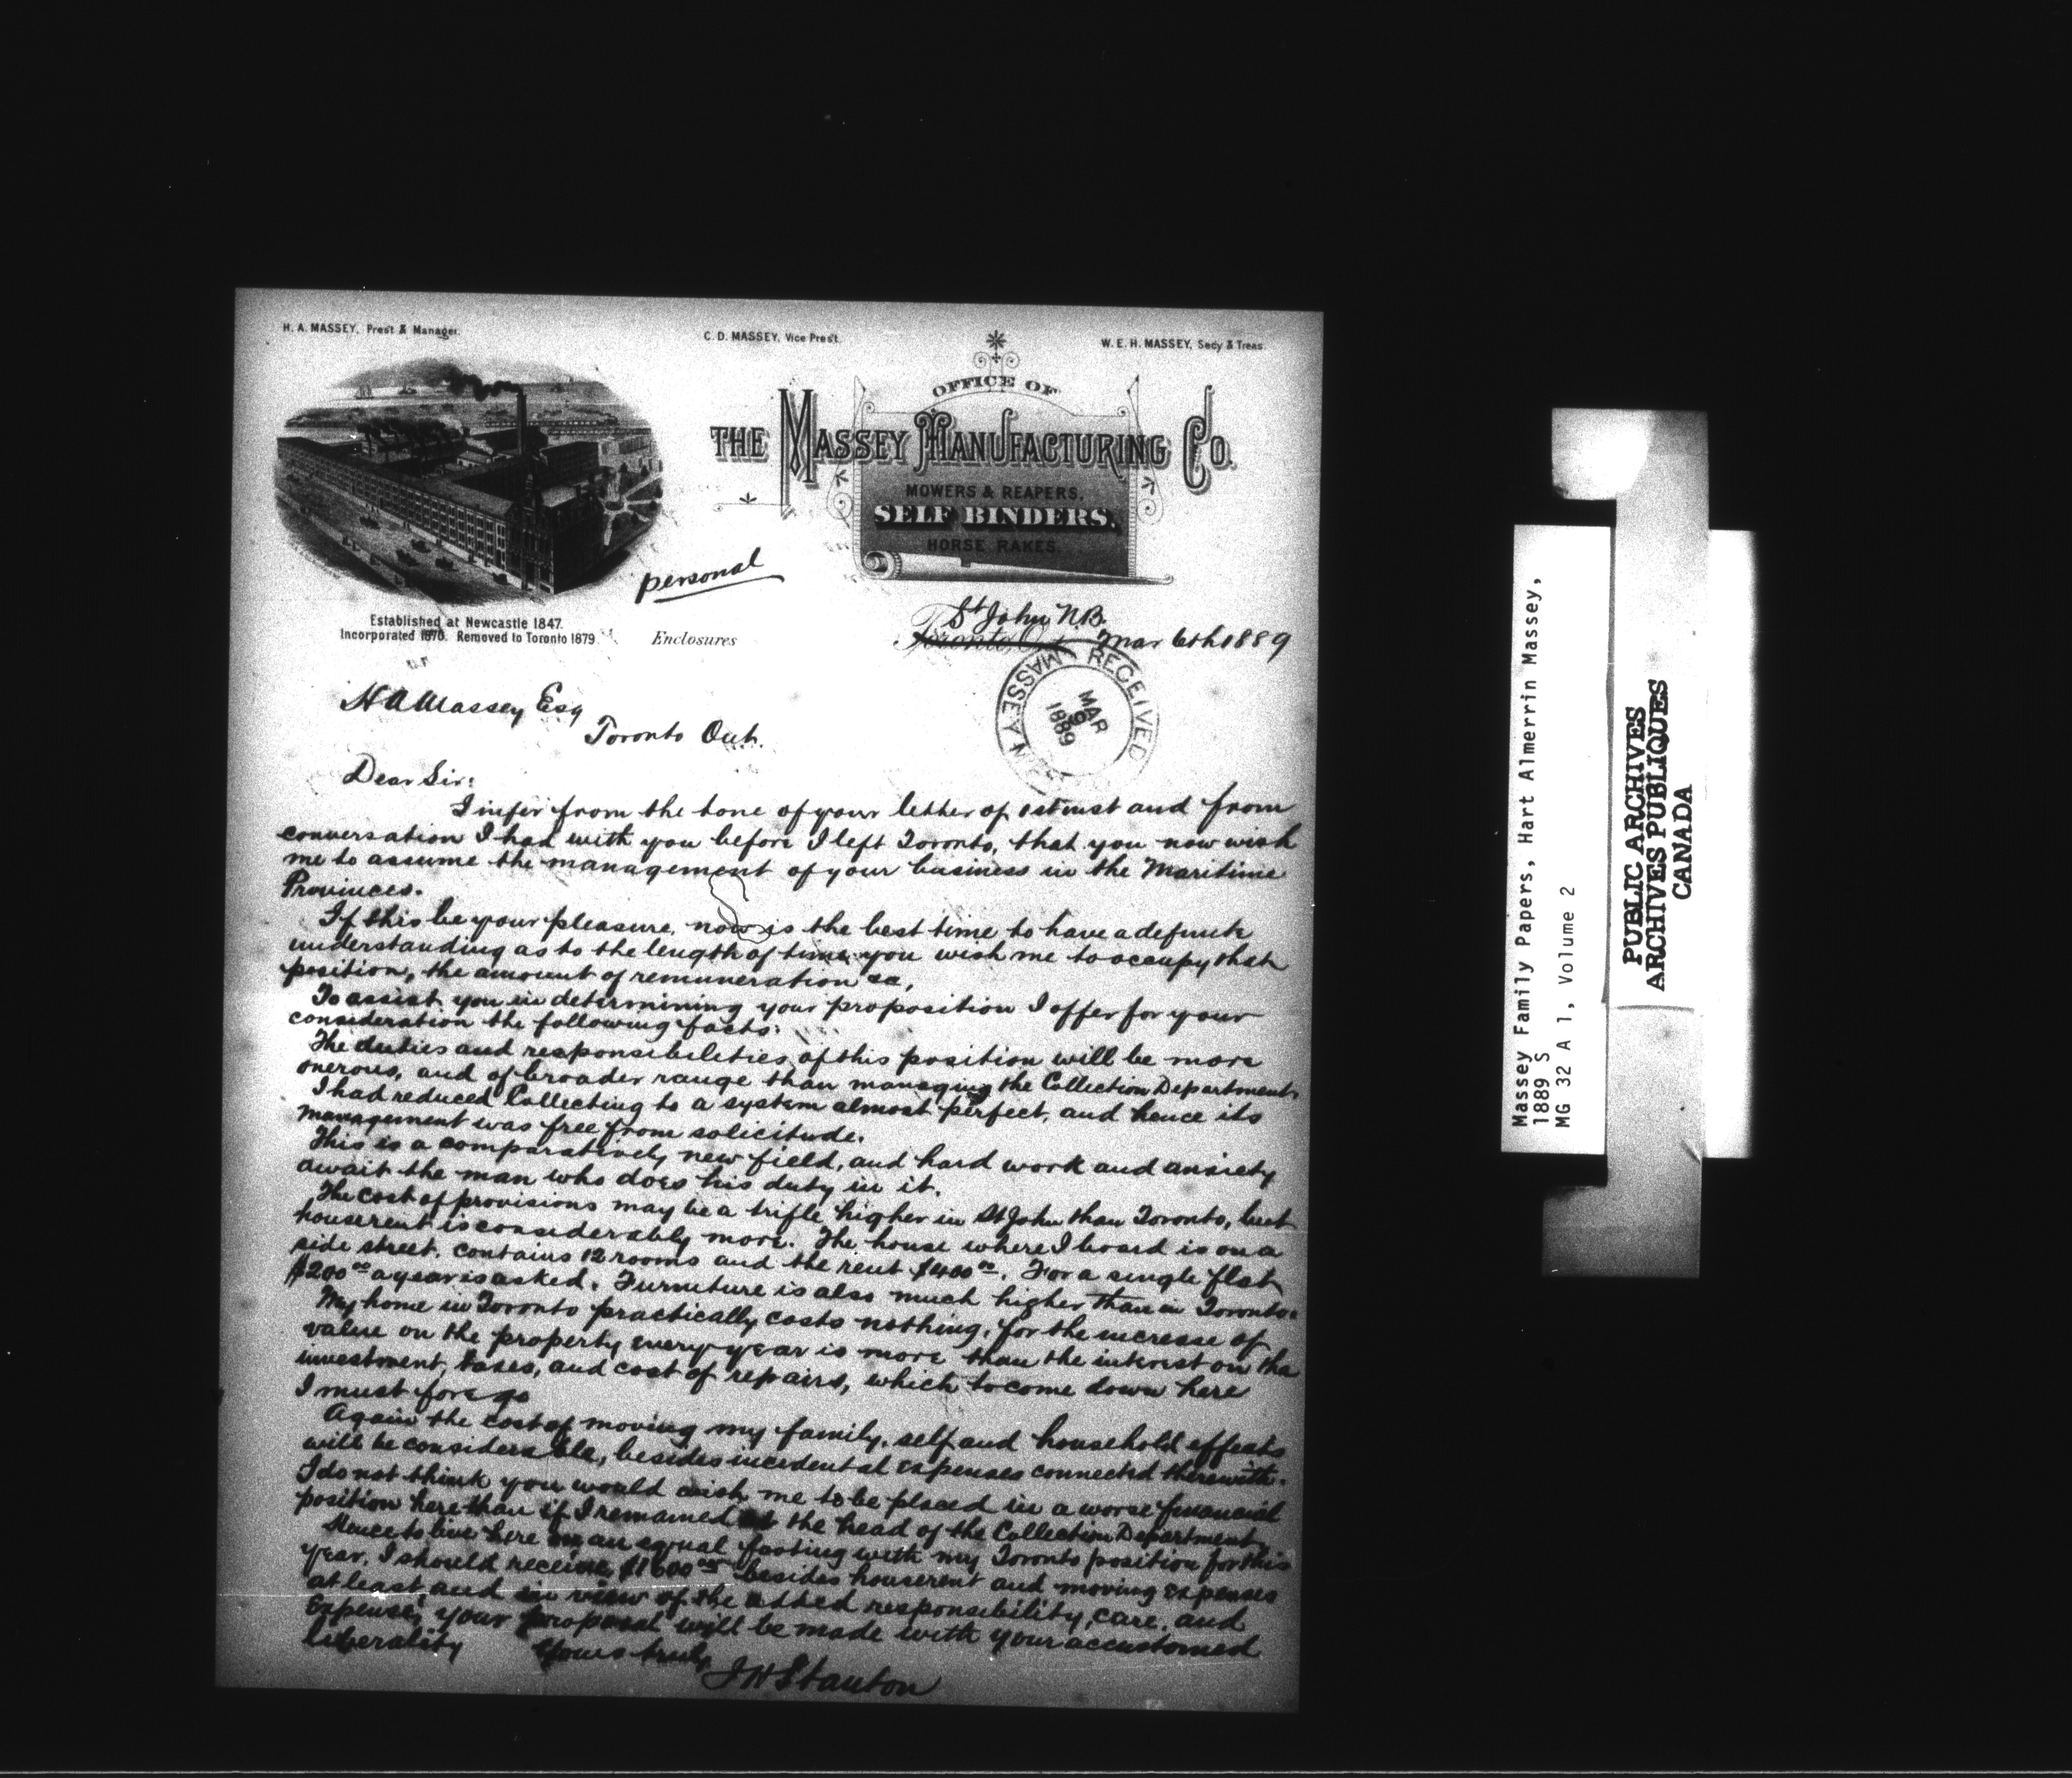 H. A. MASSEY, Prest & Manager.
C. D. MASSEY, Vice Prest.
W. E. H. MASSEY, Secy & Treas.
OFFICE OF
THE MASSEY MANUFACTURING CO.
MOWERS & REAPERS,
SELF BINDERS,
HORSE RAKES.
personal
Established at Newcastle 1847.
Incorporated 1870. Removed to Toronto 1879.
Enclosures
St John N.B.
Toronto, Ont. Mar 6th 1889
RECEIVED
MAR
1889
MASSEY
H A Massey Esq
Toronto Ont.
Dear Sir:
I infer from the tone of your letter of 1st inst and from
conversation I had with you before I left Toronto, that you now wish
me to assume the management of your business in the Maritime
Provinces.
If this be your pleasure, now is the best time to have a definite
understanding as to the length of time you wish me to occupy that
position, the amount of remuneration &c,
To assist you in determining your proposition I offer for your
consideration the following facts:
The duties and responsibilities of this position will be more
onerous, and of broader range than managing the Collection Department.
I had reduced Collecting to a system almost perfect, and hence its
management was free from solicitude.
This is a comparatively new field, and hard work and anxiety
await the man who does his duty in it.
The cost of provisions may be a trifle higher in St John than Toronto, but
houserent is considerably more. The house where I board is on a
side street, contains 12 rooms and the rent $400.00. For a single flat
$200.00 a year is asked. Furniture is also much higher than in Toronto.
My home in Toronto practically costs nothing, for the increase of
value on the property every year is more than the interest on the
investment, taxes, and cost of repairs, which to come down here
I must forego
Again the cost of moving my family, self and household effects
will be considerable, besides incedental expenses connected therewith.
I do not think you would wish me to be placed in a worse financial
position here than if I remained at the head of the Collection Department
Hence to live here on an equal footing with my Toronto position for this
year, I should receive $1600.00 besides houserent and moving expenses
at least, and in view of the added responsibility, care, and
expense, your proposal will be made with your accustomed
liberality
Yours truly
J H Stanton
Massey Family Papers, Hart Almerrin Massey,
1889 S
MG 32 A 1, Volume 2
PUBLIC ARCHIVES
ARCHIVES PUBLIQUES
CANADA